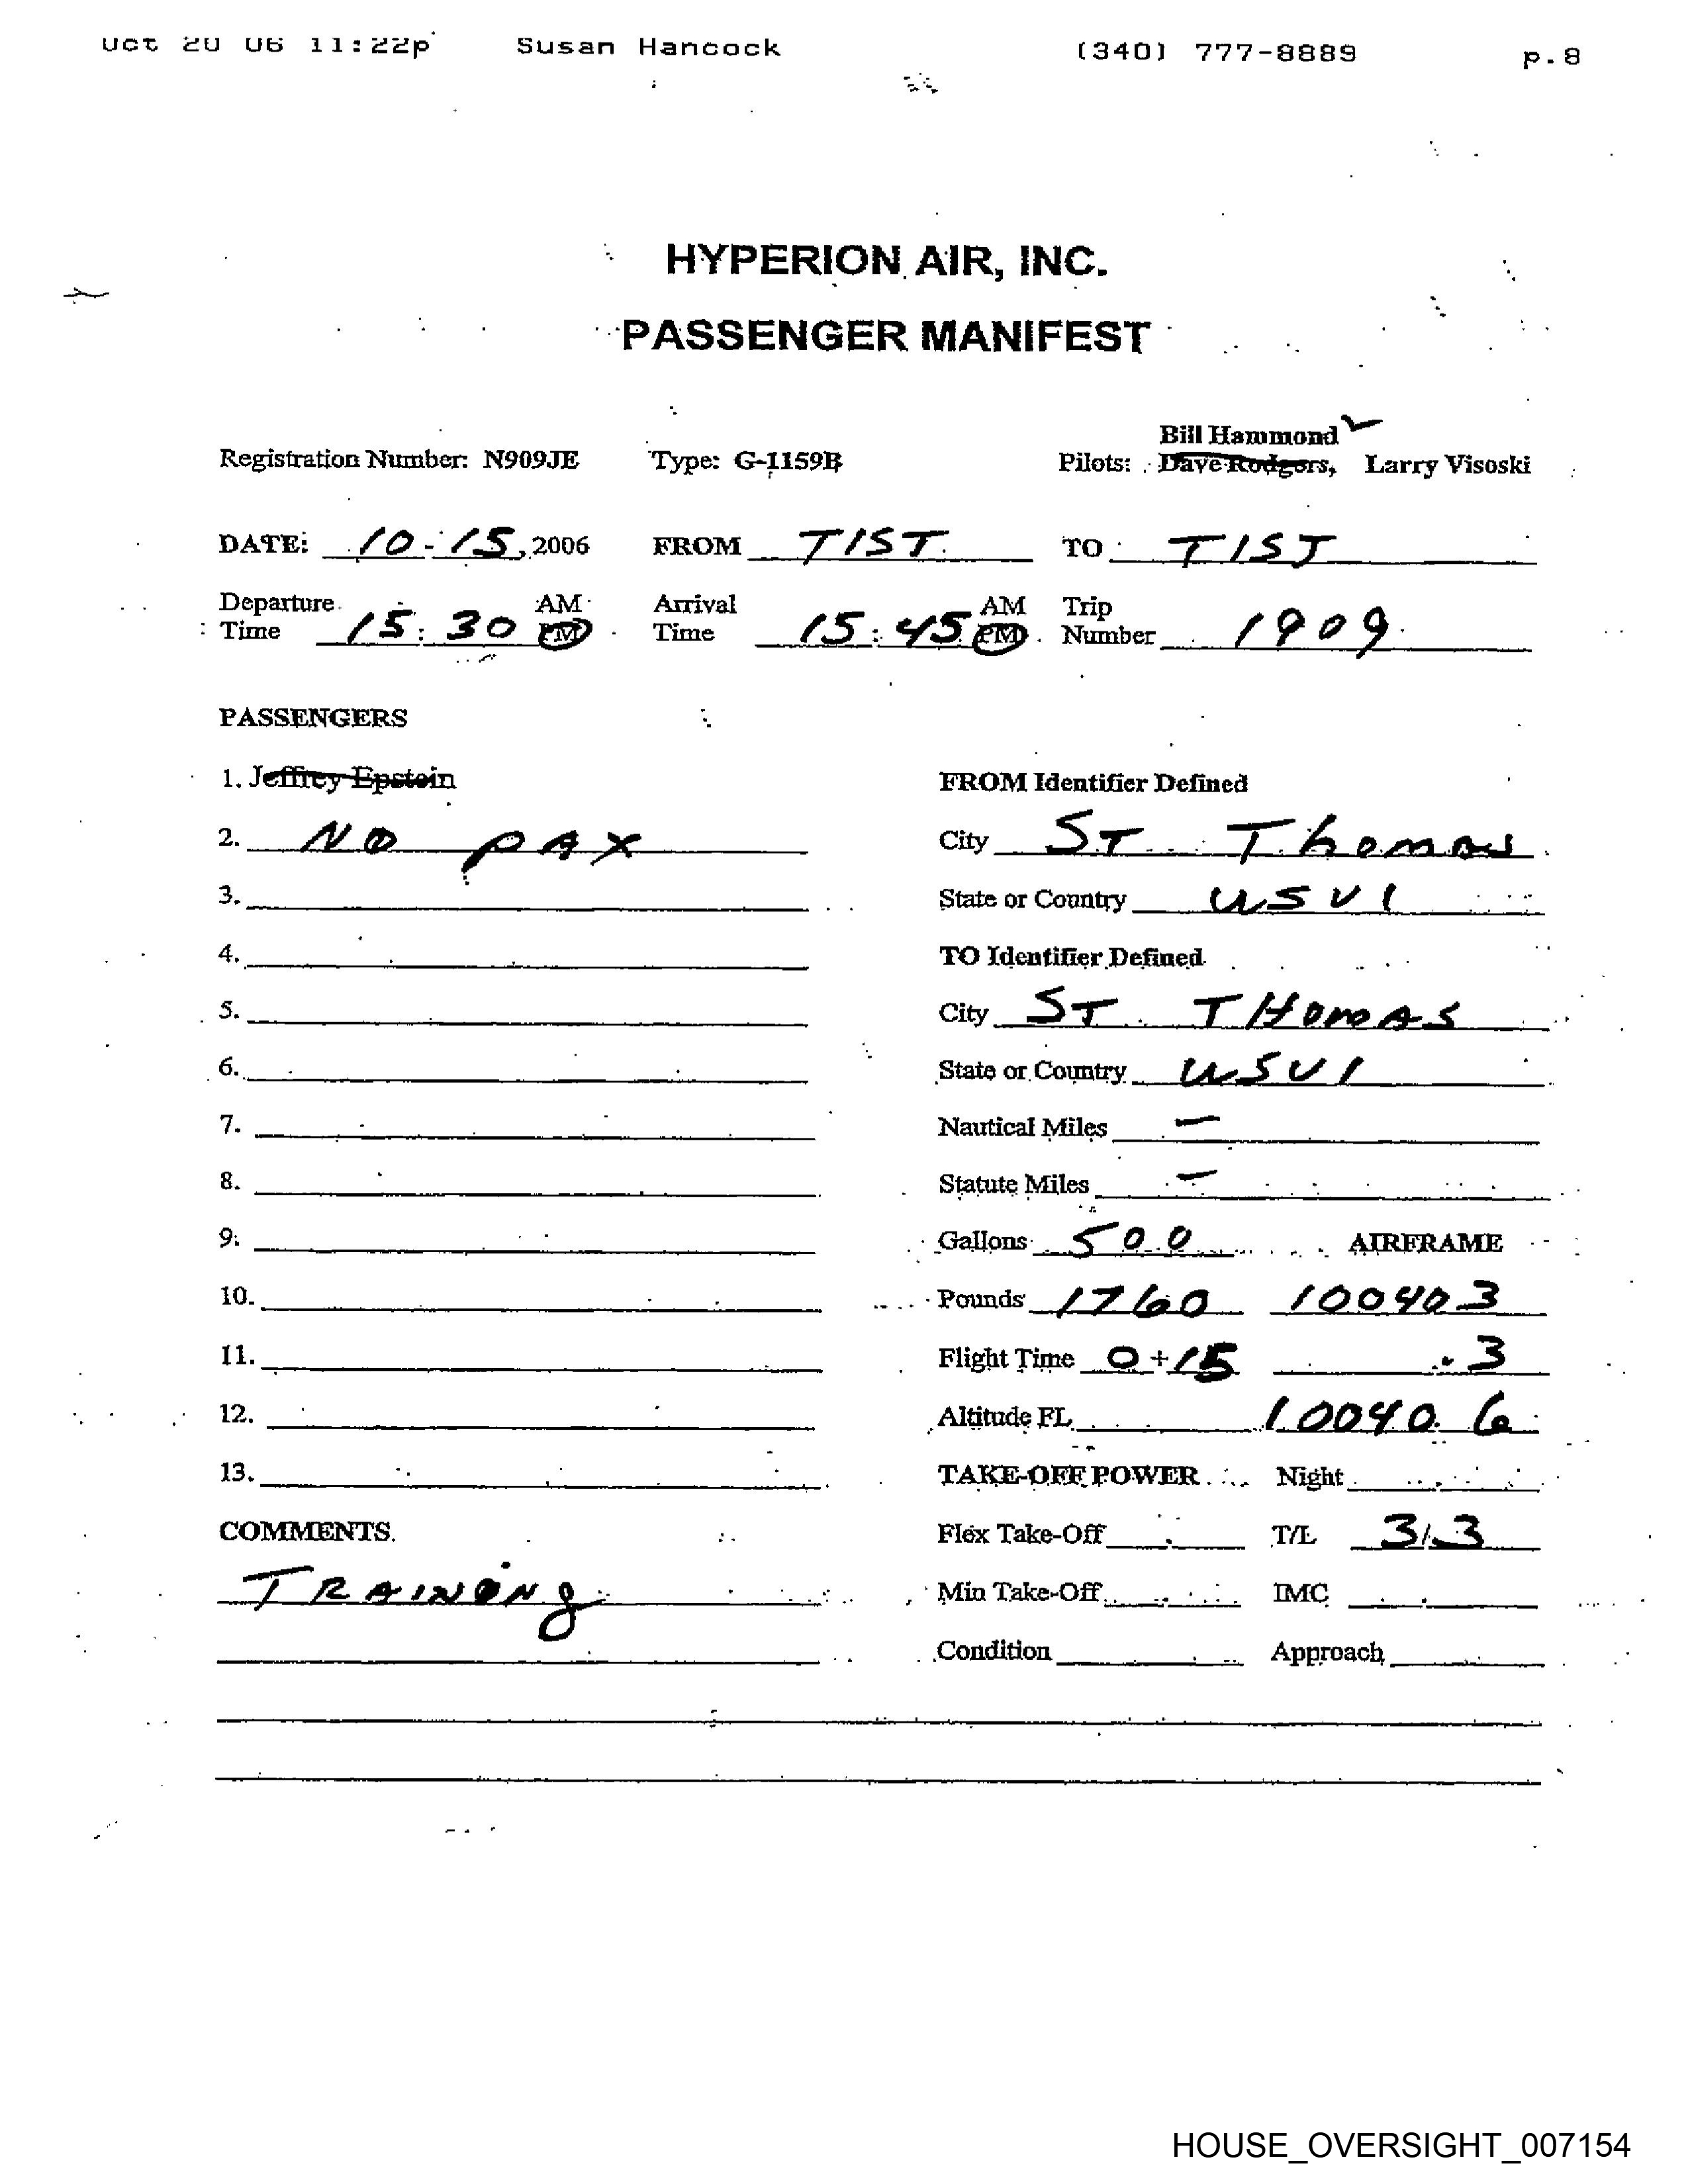 Oct 20 06 11:22p Susan Hancock (340) 777-8889 p.8
HYPERION AIR, INC.
PASSENGER MANIFEST
Bill Hammond
Registration Number: N909JE Type: G-1159B Pilots: Dave Rodgers, Larry Visoski
DATE: 10-15, 2006 FROM TIST TO TIST
Departure AM Arrival AM Trip
Time 15:30 PM Time 15:45 PM Number 1909
PASSENGERS
1. Jeffrey Epstein FROM Identifier Defined
2. NO PAX City ST Thomas
3. State or Country USVI
4. TO Identifier Defined
5. City ST THOMAS
6. State or Country USVI
7. Nautical Miles —
8. Statute Miles —
9. Gallons 500 AIRFRAME
10. Pounds 1760 10040 3
11. Flight Time 0+15 .3
12. Altitude FL 10040.6
13. TAKE-OFF POWER Night
COMMENTS Flex Take-Off T/L 3/3
TRAINING Min Take-Off IMC
Condition Approach
HOUSE_OVERSIGHT_007154